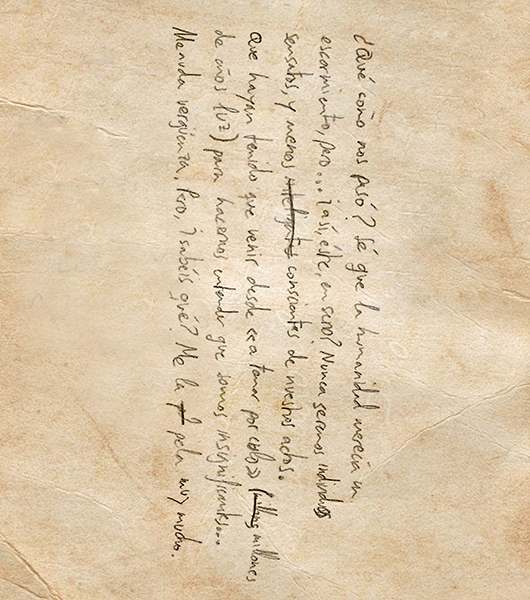 ¿Qué cómo nos pasó? Sé que la humanidad merecía un
escarmiento, pero... ¿así, éste, en serio? Nunca seremos individuos
sensatos, y menos inteligentes conscientes de nuestros actos.
Que hayan tenido que venir desde <<a tomar por culo>> (millones
de años luz) para hacernos entender que somos insignificantes...
Menuda vergüenza. Pero, ¿sabéis qué? Me la pela muy mucho.